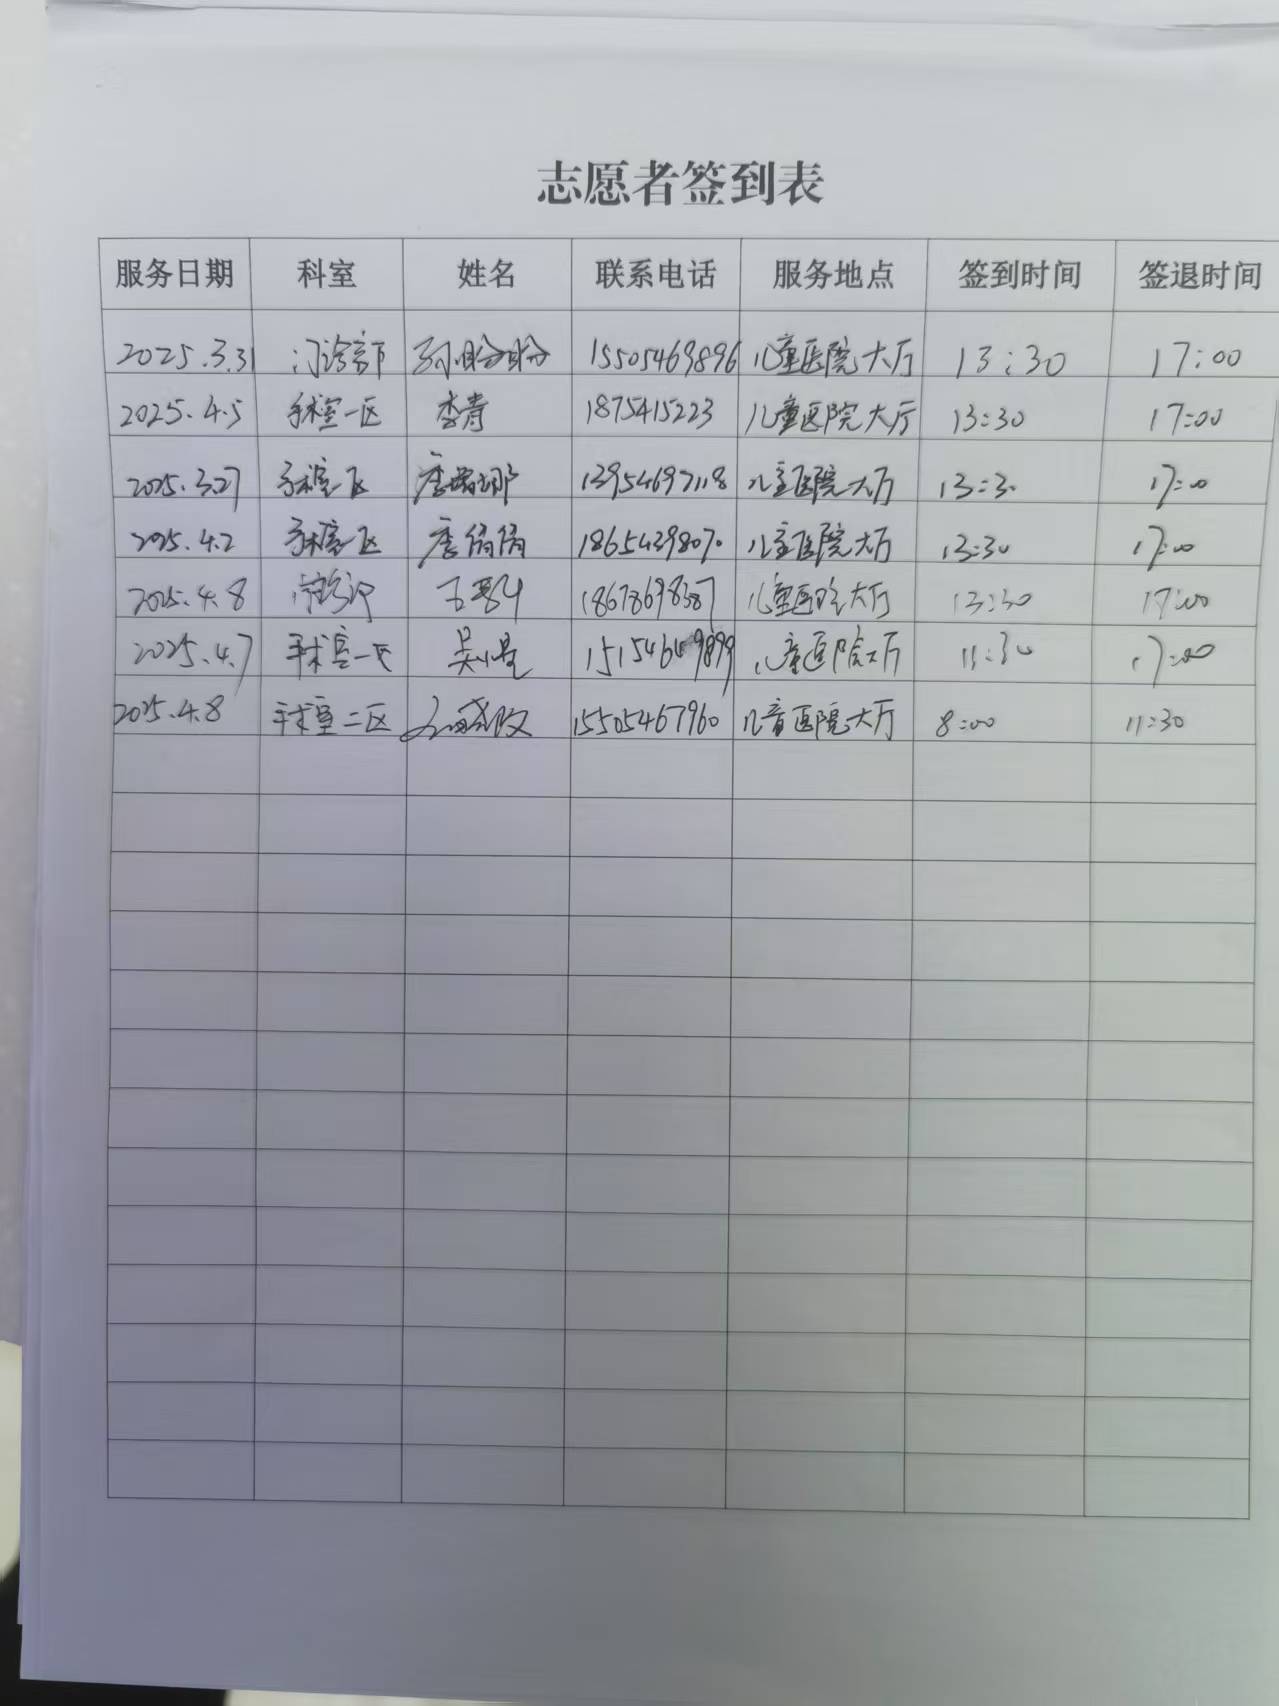 志愿者签到表
服务日期 科室 姓名 联系电话 服务地点 签到时间 签退时间
2025.3.31 门诊部 孙盼盼 15505469896 儿童医院大厅 13:30 17:00
2025.4.5 手术室一区 李青 1875415223 儿童医院大厅 13:30 17:00
2025.3.27 手术室一区 13954697118 儿童医院大厅 13:30 17:00
2025.4.2 手术室一区 18654398070 儿童医院大厅 13:30 17:00
2025.4.8 18678698387 儿童医院大厅 13:30 17:00
2025.4.7 手术室一区 儿童医院大厅 11:30 17:00
2025.4.8 手术室二区 15505467960 儿童医院大厅 8:00 11:30